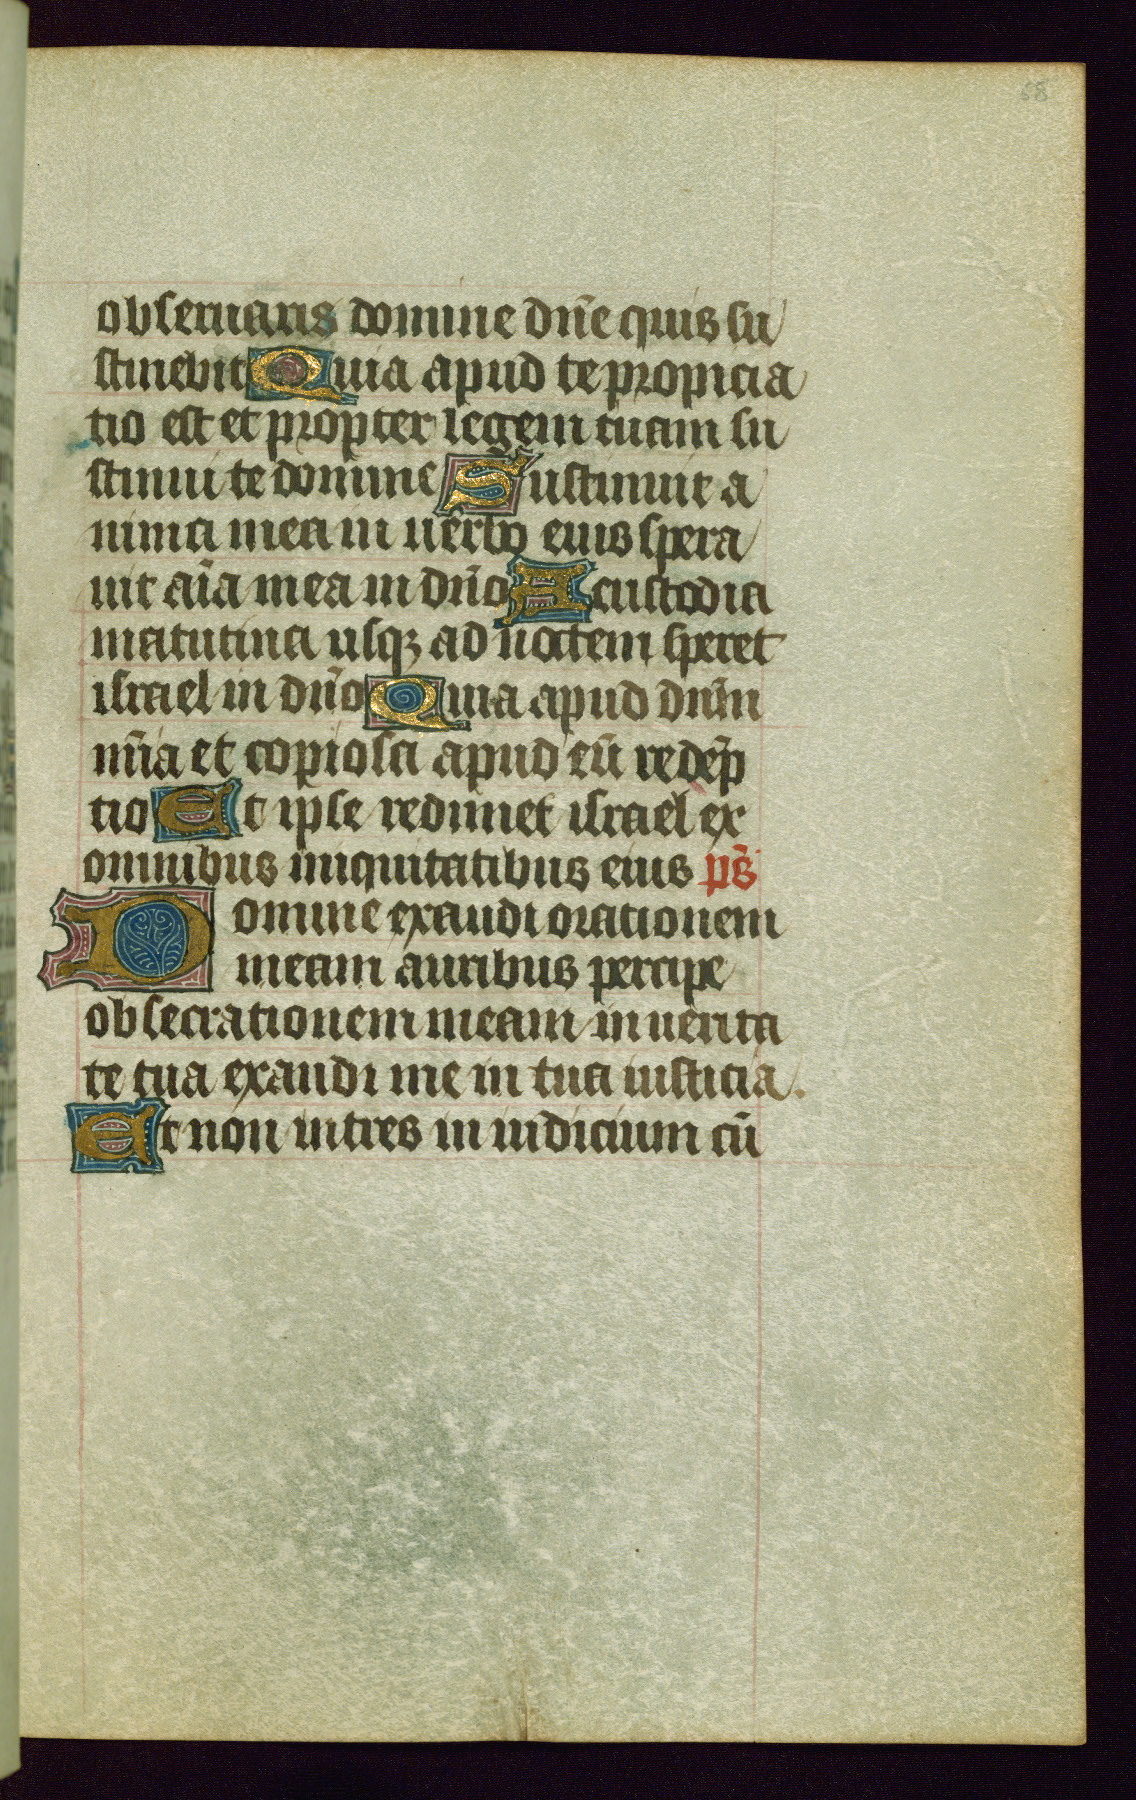 58
obseruaris domine dñe quis su
stinebit Quia apud te propicia
tio est et propter legem tuam su
stinui te domine Sustinuit a
nima mea in uerbo eius spera
uit aĩa mea in dño A custodia
matutina usqꝫ ad noctem speret
israel in dño Quia apud dñm
mĩa et copiosa apud eũ redẽp
tio Et ipse redimet israel ex
omnibus iniquitatibus eius pš
Domine exaudi orationem
meam auribus percipe
obsecrationem meam in uerita
te tua exaudi me in tua iusticia.
Et non intres in iudicium cũ